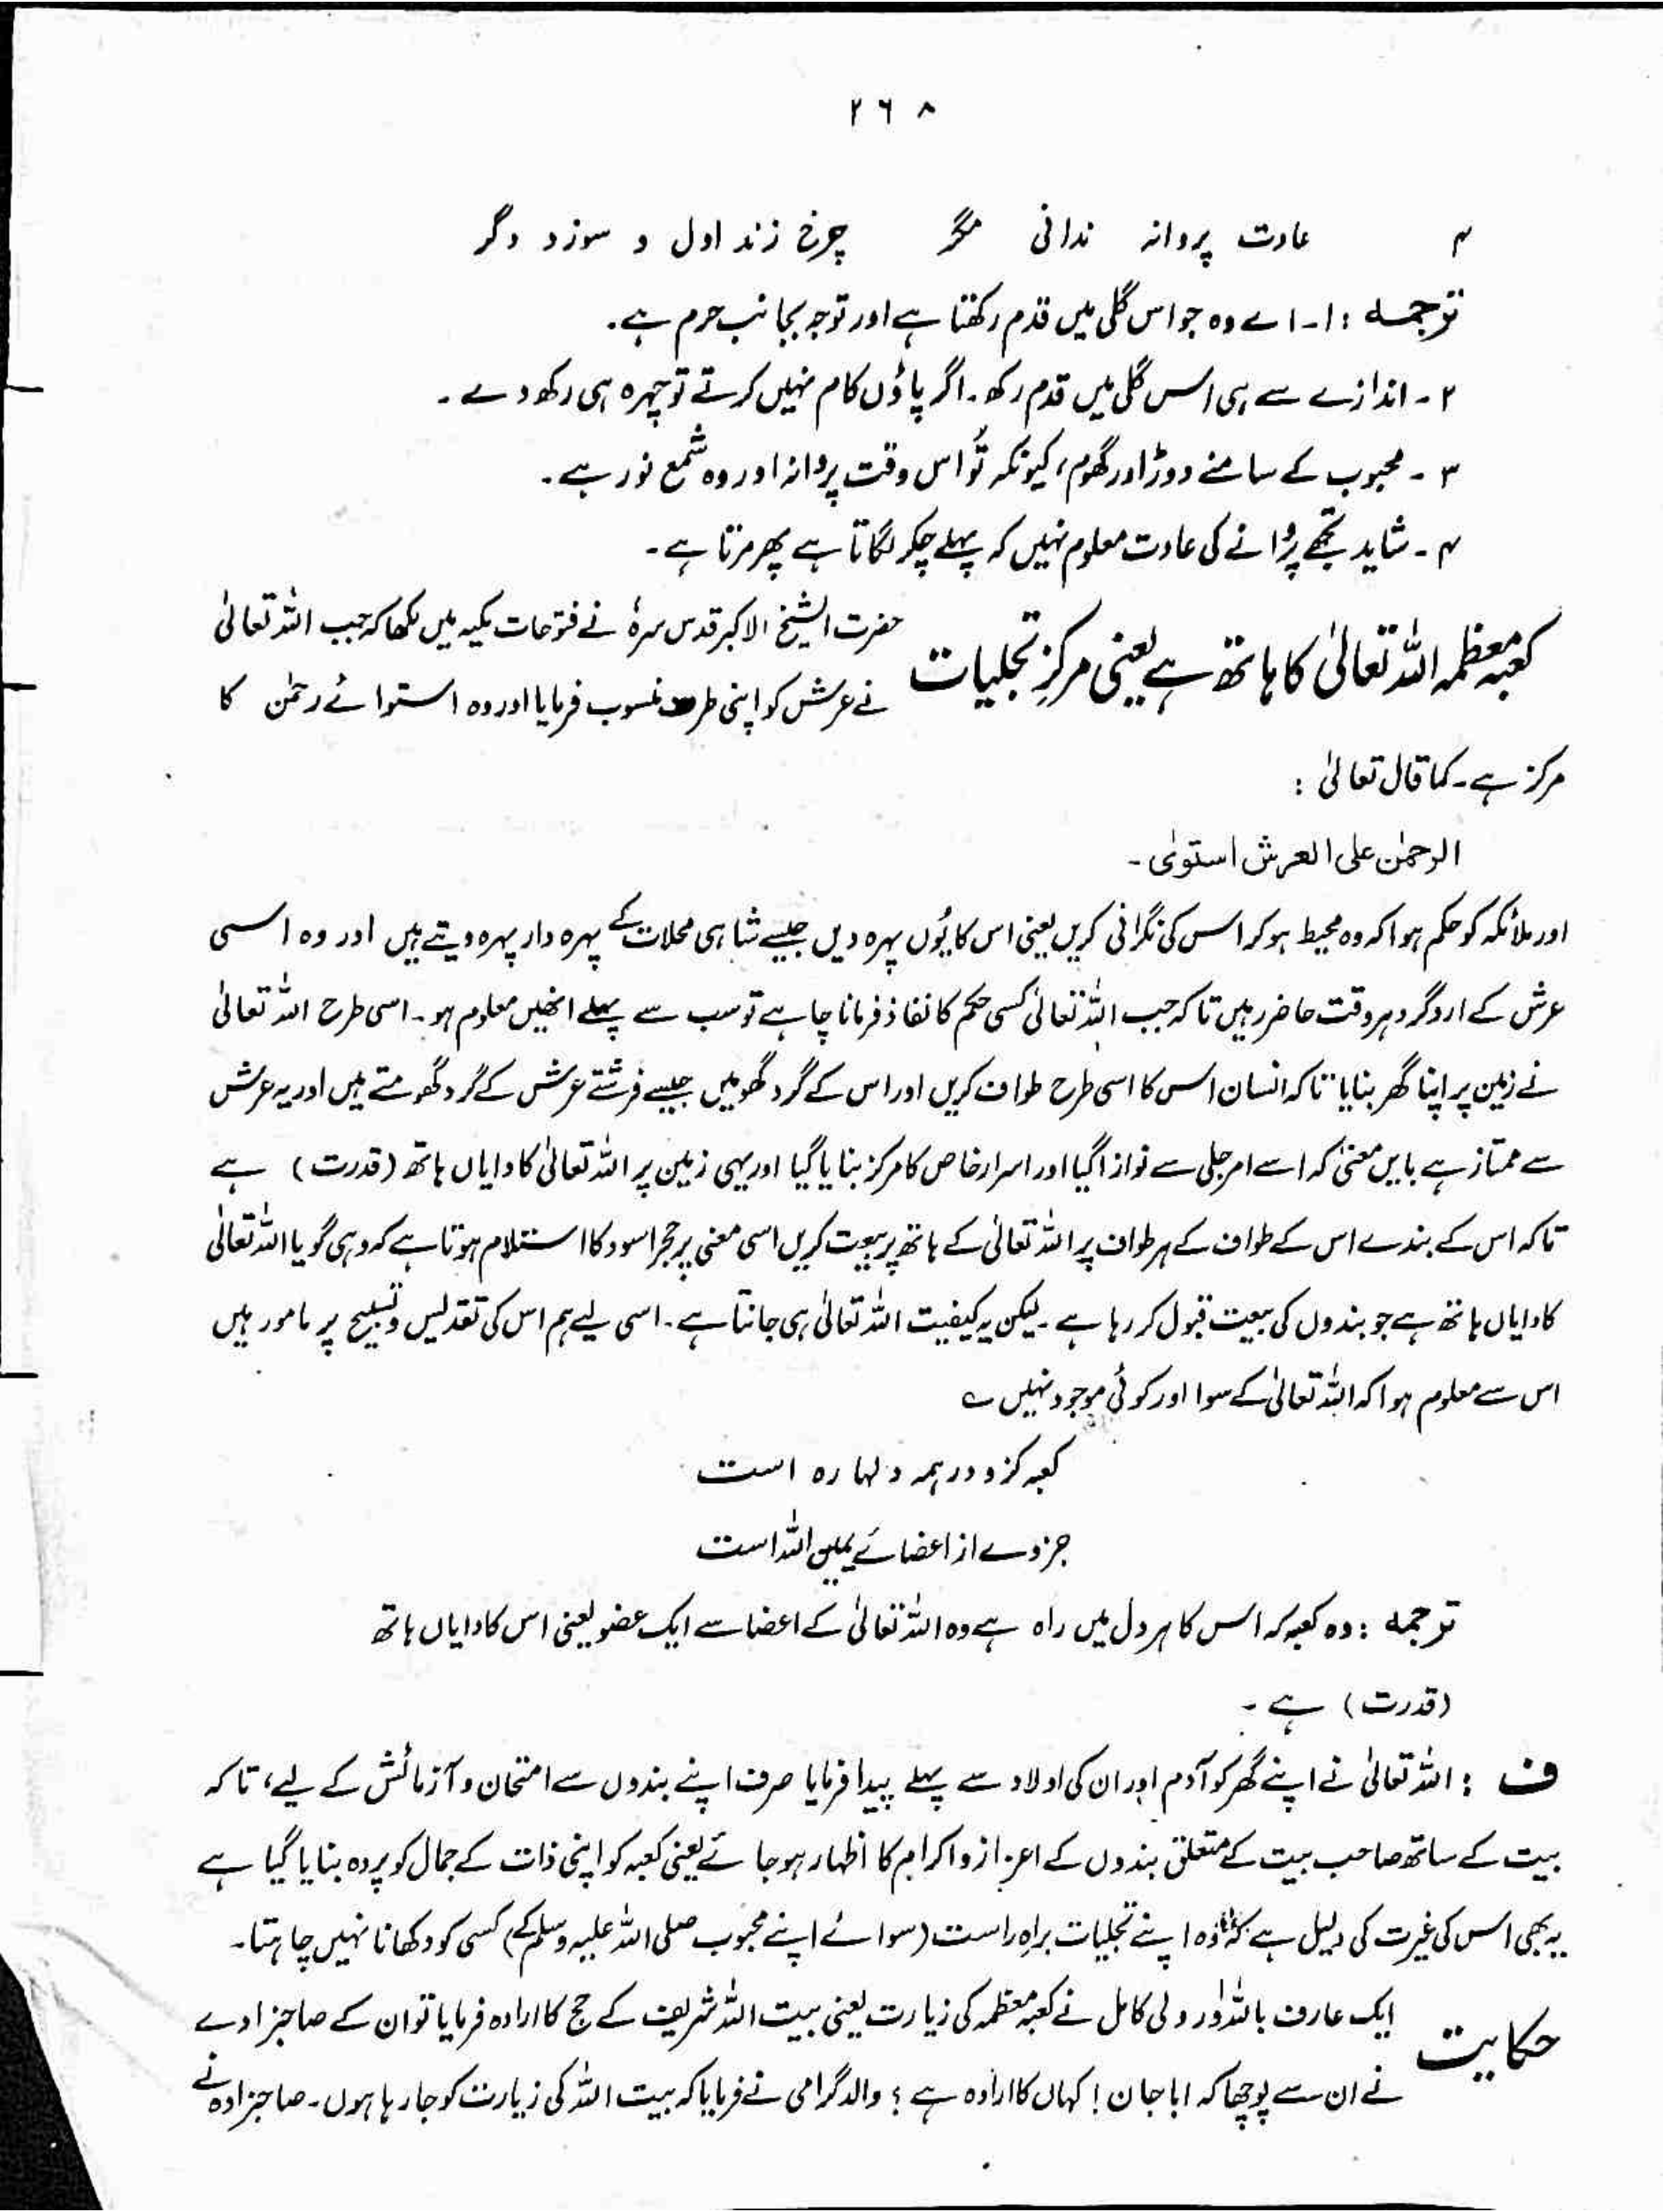 ۲۶۸
۴ عادت پروانہ ندانی مگر چرخ زند اول و سوزد دگر
ترجمہ : ۱ - اے وہ جو اس گلی میں قدم رکھتا ہے اور توجہ بجانب حرم ہے۔
۲ - اندازے سے ہی اس گلی میں قدم رکھ۔ اگر پاؤں کام نہیں کرتے تو چہرہ ہی رکھ دے۔
۳ - محبوب کے سامنے دوڑ اور گھوم، کیونکہ تُو اس وقت پروانہ اور وہ شمع نور ہے۔
۴ - شاید تجھے پروانے کی عادت معلوم نہیں کہ پہلے چکر لگاتا ہے پھر مرتا ہے۔
کعبہ معظمہ اللہ تعالیٰ کا ہاتھ ہے یعنی مرکزِ تجلیات
حضرت الشیخ الاکبر قدس سرہٗ نے فتوحات مکیہ میں لکھا کہ جب اللہ تعالیٰ
نے عرش کو اپنی طرف منسوب فرمایا اور وہ استوائے رحمٰن کا
مرکز ہے۔ کما قال تعالیٰ :
الرحمٰن علی العرش استوٰی۔
اور ملائکہ کو حکم ہوا کہ وہ محیط ہو کر اس کی نگرانی کریں یعنی اس کا یُوں پہرہ دیں جیسے شاہی محلات کے پہرہ دار پہرہ دیتے ہیں اور وہ اسی
عرش کے اردگرد ہر وقت حاضر رہیں تاکہ جب اللہ تعالیٰ کسی حکم کا نفاذ فرمانا چاہے تو سب سے پہلے انھیں معلوم ہو۔ اسی طرح اللہ تعالیٰ
نے زمین پر اپنا گھر بنایا تاکہ انسان اس کا اسی طرح طواف کریں اور اس کے گرد گھومیں جیسے فرشتے عرش کے گرد گھومتے ہیں اور یہ عرش
سے ممتاز ہے بایں معنیٰ کہ اسے امر جلی سے نوازا گیا اور اسرار خاص کا مرکز بنایا گیا اور یہی زمین پر اللہ تعالیٰ کا دایاں ہاتھ (قدرت) ہے
تاکہ اس کے بندے اس کے طواف کے ہر طواف پر اللہ تعالیٰ کے ہاتھ پر بیعت کریں اسی معنی پر حجر اسود کا استلام ہوتا ہے کہ وہی گویا اللہ تعالیٰ
کا دایاں ہاتھ ہے جو بندوں کی بیعت قبول کر رہا ہے۔ لیکن یہ کیفیت اللہ تعالیٰ ہی جانتا ہے۔ اسی لیے ہم اس کی تقدیس و تسبیح پر مامور ہیں
اس سے معلوم ہوا کہ اللہ تعالیٰ کے سوا اور کوئی موجود نہیں ؎
کعبہ کزو در ہمہ دلہا رہ است
جزوے از اعضائے یمین اللہ است
ترجمہ : وہ کعبہ کہ اس کا ہر دل میں راہ ہے وہ اللہ تعالیٰ کے اعضا سے ایک عضو یعنی اس کا دایاں ہاتھ
(قدرت) ہے۔
ف : اللہ تعالیٰ نے اپنے گھر کو آدم اور ان کی اولاد سے پہلے پیدا فرمایا صرف اپنے بندوں سے امتحان و آزمائش کے لیے، تاکہ
بیت کے ساتھ صاحب بیت کے متعلق بندوں کے اعزاز و اکرام کا اظہار ہو جائے یعنی کعبہ کو اپنی ذات کے جمال کو پردہ بنایا گیا ہے
یہ بھی اس کی غیرت کی دلیل ہے کہ وُہ اپنے تجلیات براہِ راست (سوائے اپنے محبوب صلی اللہ علیہ وسلم کے) کسی کو دکھانا نہیں چاہتا۔
حکایت ایک عارف باللہ اور ولی کامل نے کعبہ معظمہ کی زیارت یعنی بیت اللہ شریف کے حج کا ارادہ فرمایا تو ان کے صاحبزادے
نے ان سے پوچھا کہ ابا جان ! کہاں کا ارادہ ہے ؟ والد گرامی نے فرمایا کہ بیت اللہ کی زیارت کو جا رہا ہوں۔ صاحبزادہ نے